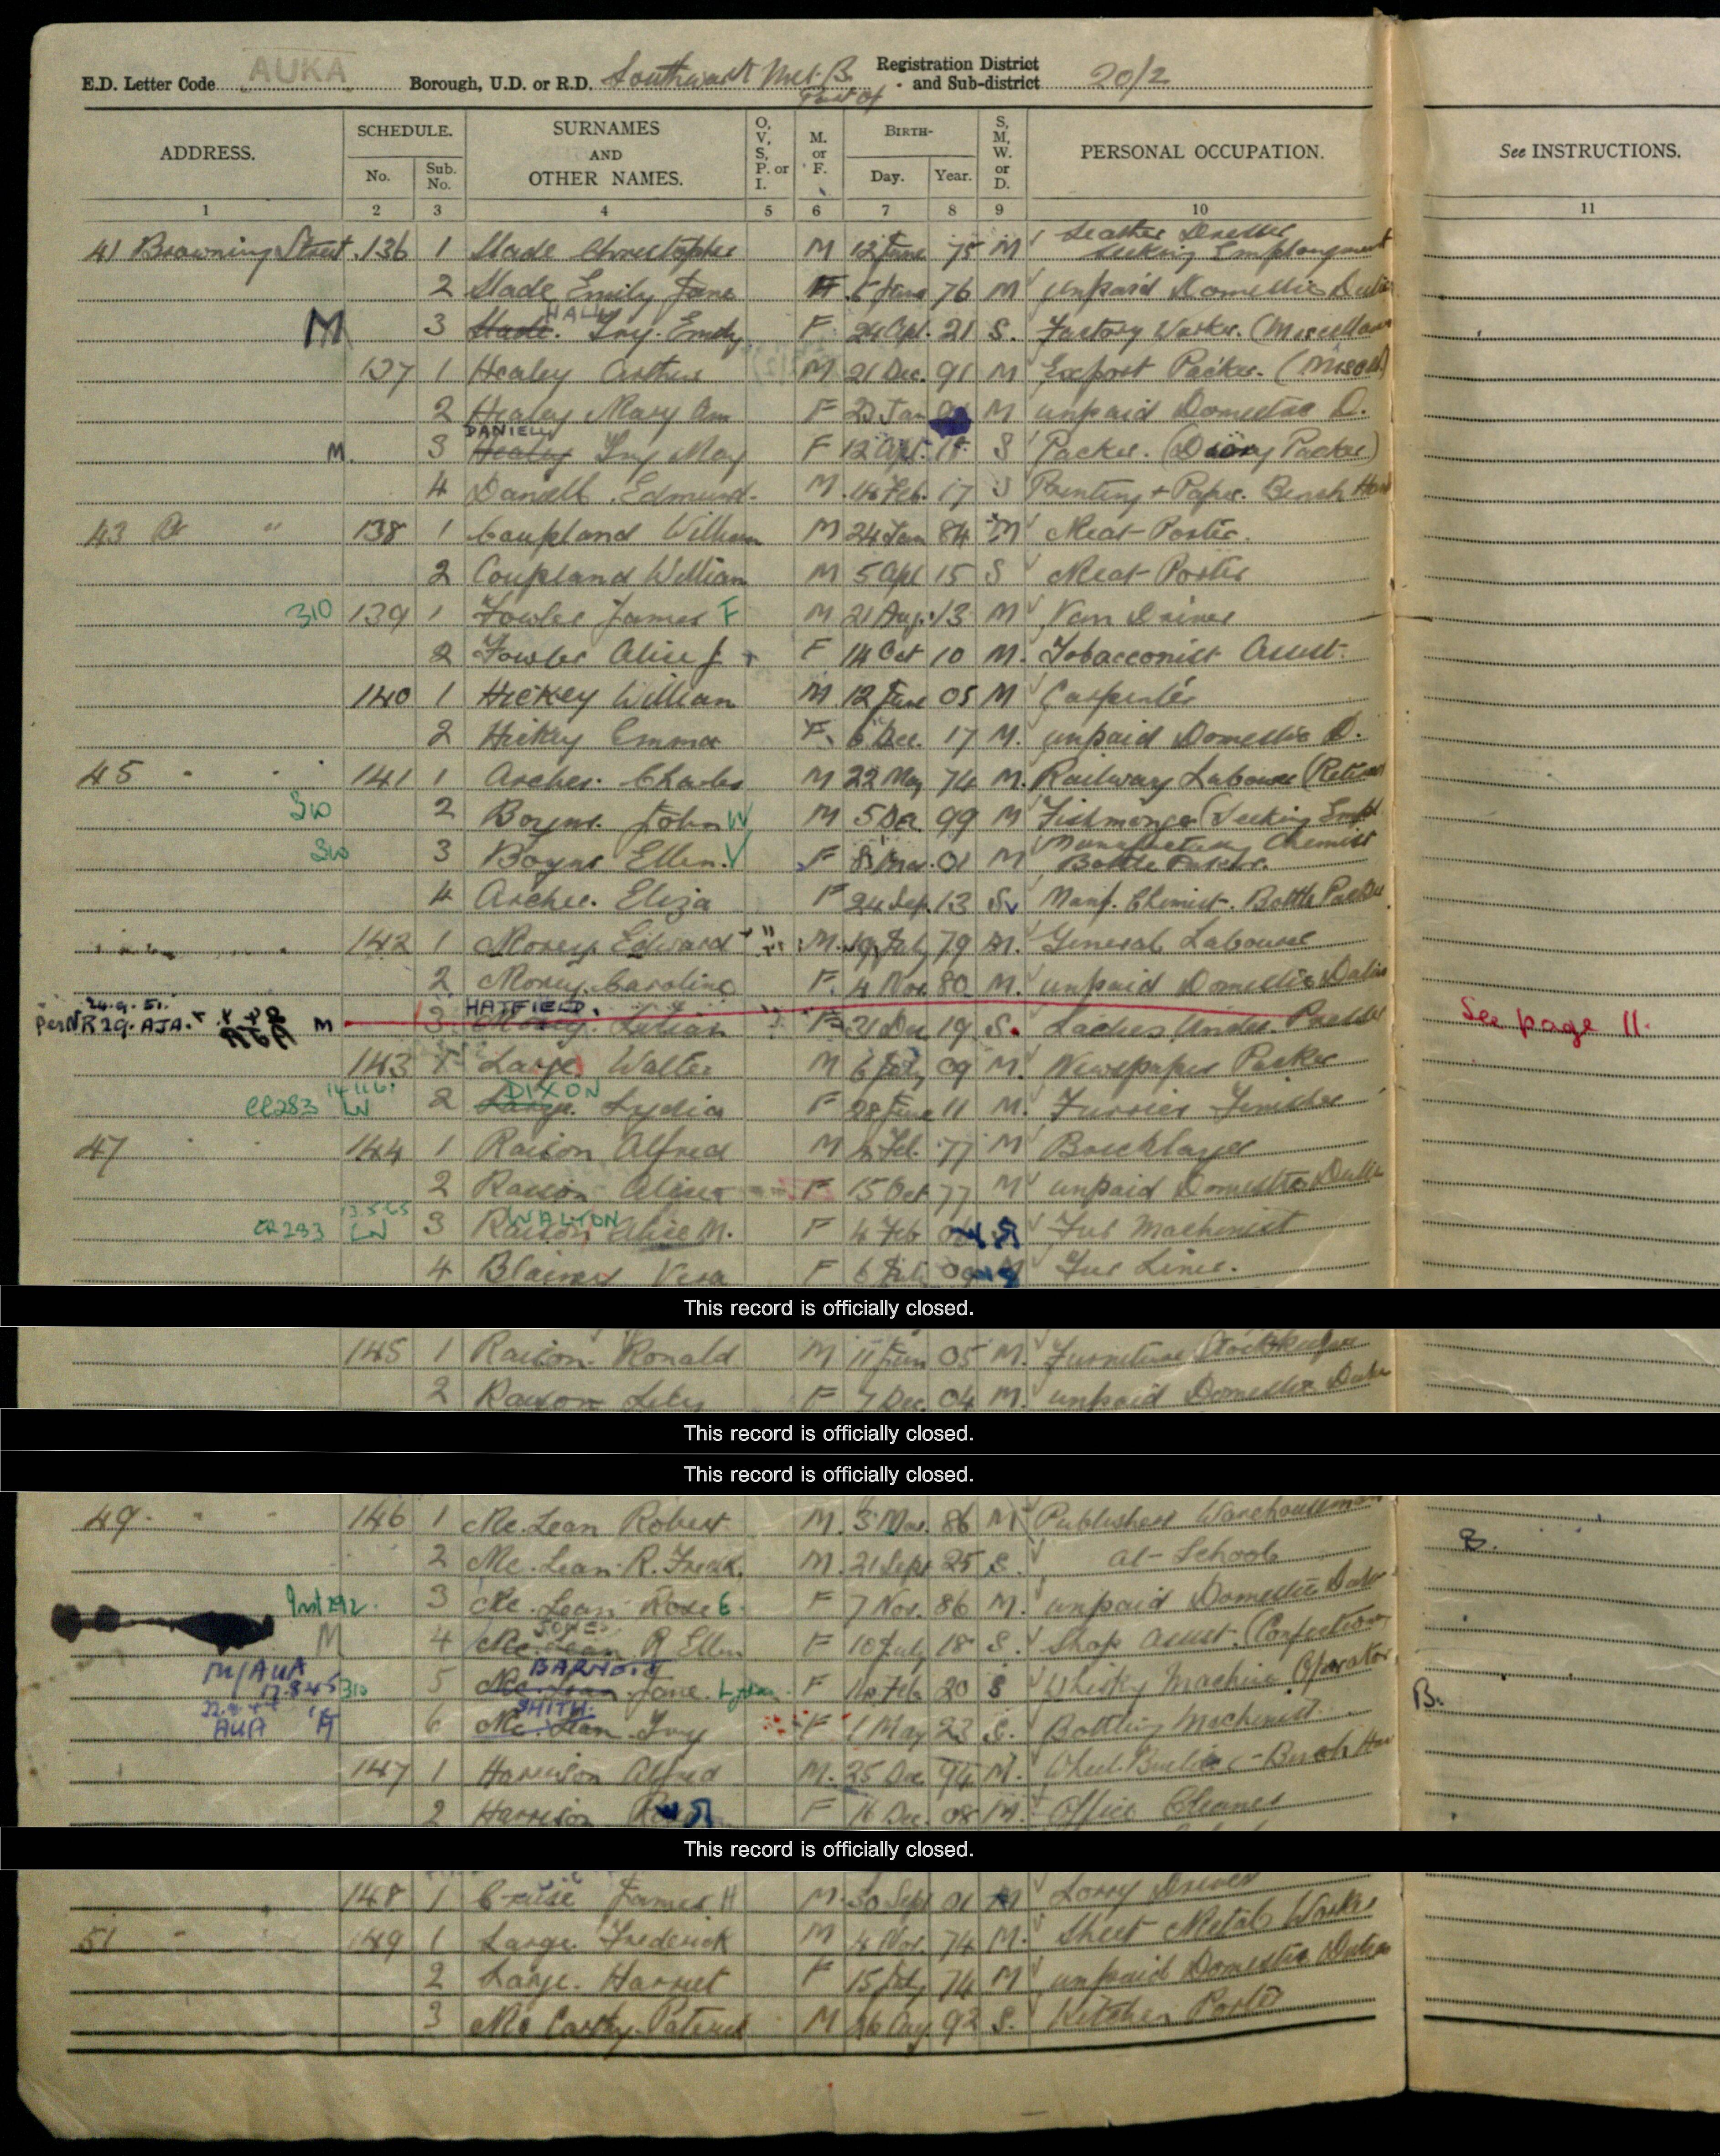 E.D. Letter Code AUKA Borough, U.D. or R.D. Southwark Met. B. Part of Registration District and Sub-district 20/2
ADDRESS. SCHEDULE. No. Sub. No. SURNAMES AND OTHER NAMES. O, V, S, P. or I. M. or F. BIRTH- Day. Year. S, M, W. or D. PERSONAL OCCUPATION. See INSTRUCTIONS.
1 2 3 4 5 6 7 8 9 10 11
41 Browning Street 136 1 Slade Christopher M 12 June 75 M Leather Dresser Seeking Employment
2 Slade Emily Jane F 5 76 M unpaid Domestic Duties
M 3 Slade HALL Ivy Emily F 24 Apl. 21 S. Factory Worker.
137 1 Healey Arthur M 21 Dec. 91 M Export Packer.
2 Healey Mary Ann F 23 Jan M unpaid Domestic D.
M. 3 Healey DANIELL Ivy May F 12 Apl. S Packer. (Packer)
4 Daniell Edmund M 14 Feb. 17 S Printing + Paper Bench
43 Do " 138 1 Coupland William M 24 Jan 84 M Meat Porter.
2 Coupland William M 5 Apl 15 S Meat Porter
310 139 1 Fowler James F M 21 Aug. 13 M Van Driver
2 Fowler Alice J F 14 Oct 10 M. Tobacconist Assist.
140 1 Hickey William M. 12 June 05 M Carpenter
2 Hickey Emma F. 6 Dec. 17 M. unpaid Domestic D.
45 141 1 Archer Charles M 22 May 74 M. Railway Labourer (Retired
310 2 Boyne John W M 5 Dec 99 M Fishmonger (Seeking Empt
310 3 Boyne Ellen V F 8 Mar. 01 M Manufacturing Chemist Bottle Packer.
4 Archer Eliza F 24 Sep. 13 S Manf. Chemist. Bottle Packer
142 1 Morey Edward M. 19 July 79 M. General Labourer
2 Morey Caroline F. 4 Nov 80 M. unpaid Domestic Duties
24.9.51. Per NR 29. AJA. M 3 Morey HATFIELD. Lilian F 31 Dec 19 S. Ladies See page 11.
143 1 Large Walter M 6 July 09 M. Newspaper Packer
CR283 LN 2 Large DIXON Lydia F 28 June 11 M. Furrier Finisher
47 144 1 Raison Alfred M Feb. 77 M Bricklayer
2 Raison Alice F 15 Oct 77 M unpaid Domestic Duties
CR283 13.5.65 LN 3 Raison WALTON Alice M. F 4 Feb Fur Machinist
4 Vera F 6 July 09 Fur Liner.
This record is officially closed.
145 1 Raison Ronald M 11 05 M. Furniture Stockkeeper
2 Raison Lily F 7 Dec. 04 M. unpaid Domestic Duties
This record is officially closed.
This record is officially closed.
49 146 1 Mc.Lean Robert M. 3 Mar. 86 M Publishers Warehouseman
2 Mc.Lean R. Fredk. M. 21 Sept 25 S. at School B.
3 Mc.Lean Rose E F 7 Nov. 86 M. unpaid Domestic Duties
M 4 Mc.Lean JONES R Ellen F 10 July 18 S. Shop Assist. (Confectioner)
M/AUA 17.8.45 310 5 Mc.Lean Jane F 14 Feb 20 S Whisky Machine Operator B.
AUA 6 Mc.Lean SMITH. Ivy F 1 May 23 S. Bottling Machinist
147 1 Harrison Alfred M. 25 Dec 94 M.
2 Harrison F 16 Dec. 08 M. Office Cleaner
This record is officially closed.
148 1 Cruse James H M. 30 Sept 01 M Lorry Driver
51 149 1 Large Frederick M 4 Nov. 74 M. Sheet Metal Worker
2 Large Harriet F 15 July 74 M unpaid Domestic Duties
3 Mc Carthy Patrick M 92 S. Kitchen Porter